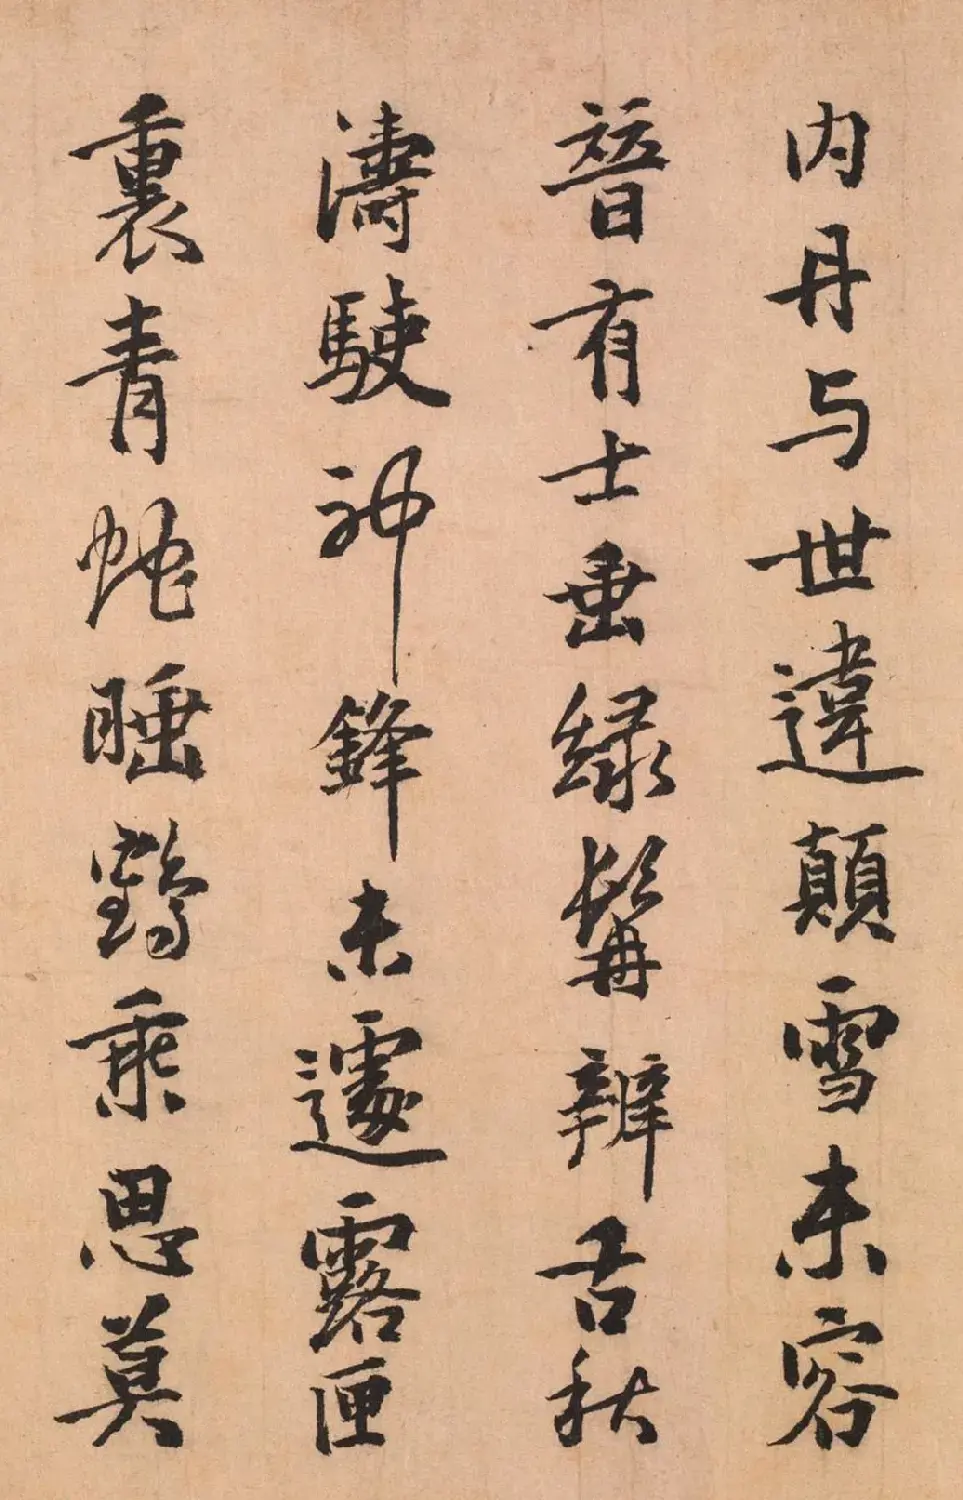 内丹与世違顛雪未容
簮有士垂緑鬢辨舌秋
濤駛神鋒未遽露匣
裏青虵睡鶴乘思莫